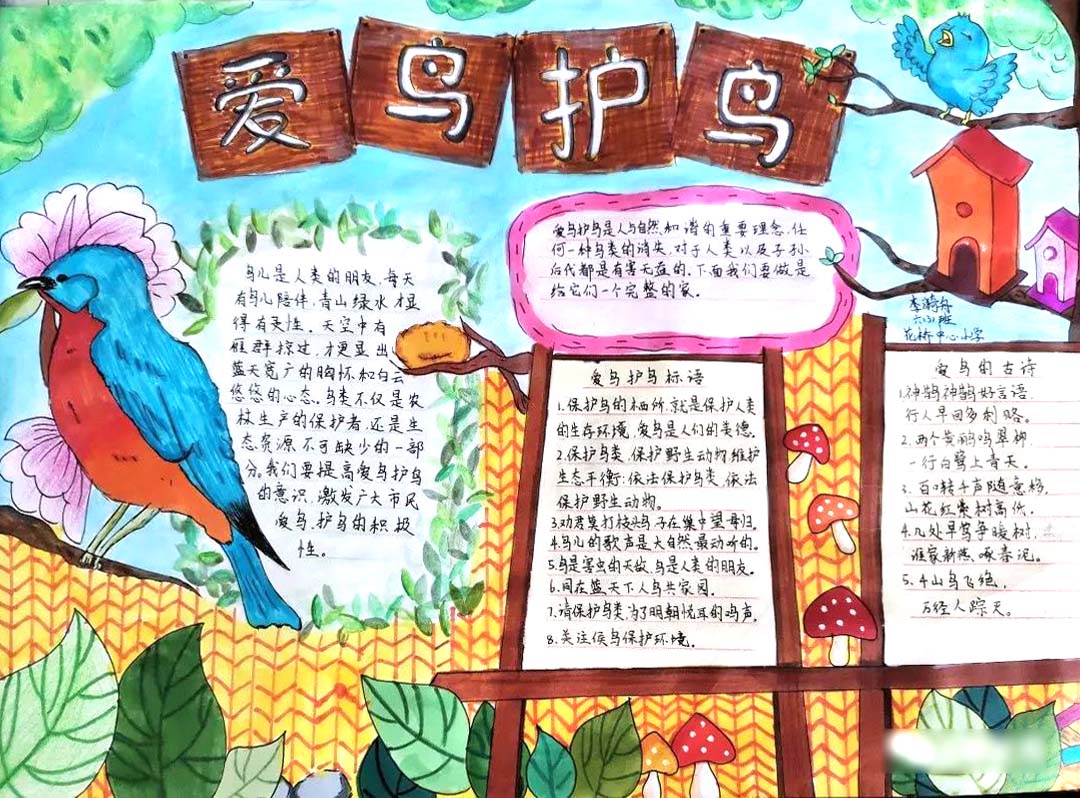 爱鸟护鸟
鸟儿是人类的朋友,每天
有鸟儿陪伴,青山绿水才显
得有灵性。天空中有
雁群掠过,才更显出
蓝天宽广的胸怀和白云
悠悠的心态。鸟类不仅是农
林生产的保护者,还是生
态资源不可缺少的一部
分。我们要提高爱鸟护鸟
的意识,激发广大市民
爱鸟,护鸟的积极
性。
爱鸟护鸟是人与自然和谐的重要理念,任
何一种鸟类的消失,对于人类以及子孙
后代都是有害无益的。下面我们要做是
给它们一个完整的家。
李漪舟
六(3)班
花桥中心小学
爱鸟护鸟标语
1.保护鸟的栖所,就是保护人类
的生存环境,爱鸟是人们的美德。
2.保护鸟类,保护野生动物维护
生态平衡;依法保护鸟类,依法
保护野生动物。
3.劝君莫打枝头鸟,子在巢中望母归。
4.鸟儿的歌声是大自然最动听的。
5.鸟是害虫的天敌,鸟是人类的朋友。
6.同在蓝天下人鸟共家园。
7.请保护鸟类,为了明朝悦耳的鸣声。
8.关注候鸟保护环境。
爱鸟的古诗
1.神鹊神鹊好言语,
行人早回多利赂。
2.两个黄鹂鸣翠柳,
一行白鹭上青天。
3.百啭千声随意移,
山花红紫树高低。
4.几处早莺争暖树,
谁家新燕啄春泥。
5.千山鸟飞绝,
万径人踪灭。